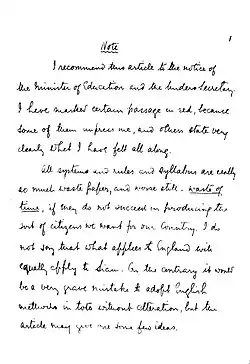 1
Note
I recommend this article to the notice of
the Minister of Education and the Under Secretary.
I have marked certain passage in red, because
some of them impress me, and others state very
clearly what I have felt all along.
All systems and rules and syllabus are really
so much waste paper, and worse still - waste of
time, if they do not succeed in producing the
sort of citizens we want for our Country. I do
not say that what applies to England will
equally apply to Siam. On the contrary it would
be a very grave mistake to adopt English
methods in toto without alteration, but the
article may give me some few ideas.